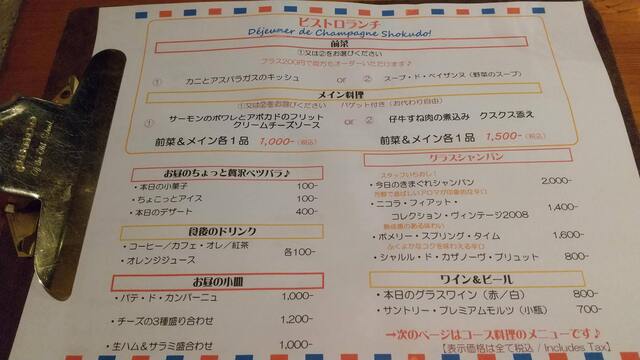 ビストロランチ
Déjeuner de Champagne Shokudo!
前菜
①又は②をお選びください
プラス200円で両方もオーダーいただけます♪
① カニとアスパラガスのキッシュ or ② スープ・ド・ペイザンヌ（野菜のスープ）
メイン料理
①又は②をお選びください バゲット付き（お代わり自由）
① サーモンのポワレとアボカドのフリット クリームチーズソース or ② 仔牛すね肉の煮込み クスクス添え
前菜＆メイン各１品 1,000-(税込) 前菜＆メイン各１品 1,500-(税込)
お昼のちょっと贅沢ベツバラ♪
・本日の小菓子 100-
・ちょこっとアイス 100-
・本日のデザート 400-
食後のドリンク
・コーヒー／カフェ・オレ／紅茶 各100-
・オレンジジュース
お昼の小皿
・パテ・ド・カンパーニュ 1,000-
・チーズの3種盛り合わせ 1,200-
・生ハム＆サラミ盛合わせ 1,000-
グラスシャンパン
スタッフいちおし！
・今日のきまぐれシャンパン 2,000-
芳醇で香ばしいアロマが印象的な辛口
・ニコラ・フィアット・
コレクション・ヴィンテージ2008 1,400-
熟成感のある味わい
・ポメリー・スプリング・タイム 1,600-
ふくよかなコクを味わえる辛口
・シャルル・ド・カザノーヴ・ブリュット 800-
ワイン＆ビール
・本日のグラスワイン（赤／白） 800-
・サントリー・プレミアムモルツ（小瓶） 700-
→次のページはコース料理のメニューです♪
【表示価格は全て税込 / Includes Tax】